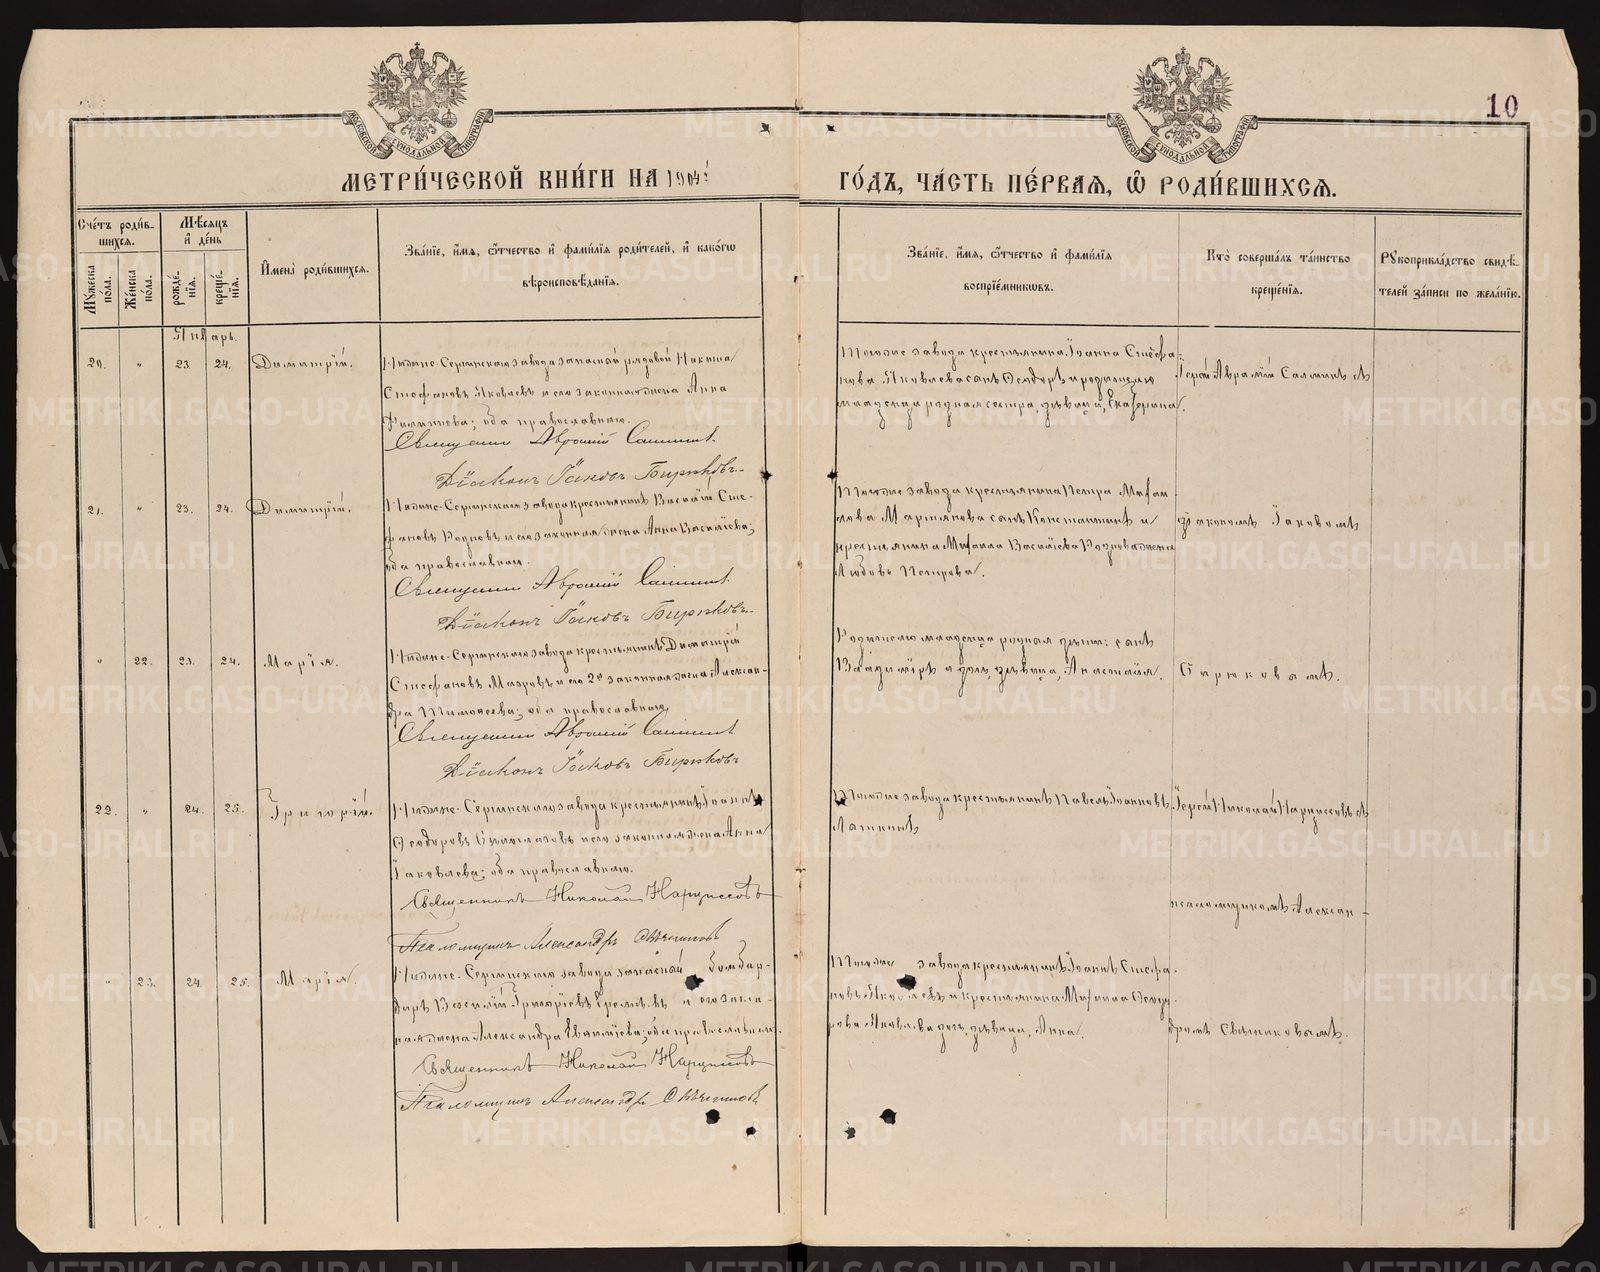 10
МЕТРИ́ЧЕСКОЙ КНИ́ГИ НА 1904 й
ГО́ДЪ, ЧА́СТЬ ПЕ́РВАЯ, Ѿ РОДИ́ВШИХСЯ.
Сче́тъ роди́в-
шихся.
Мꙋжеска по́ла.
Же́нска по́ла.
Мѣ́сяцъ и҆ де́нь
рожде́-
нїѧ.
креще́-
нїѧ.
И҆мена̀ роди́вшихся.
Зва́нїе, и҆́мя, ѻ҆́тчество и҆ фами́лїя роди́телей, и҆ како́гѡ
вѣроисповѣ́данїя.
Зва́нїе, и҆́мя, ѻ҆́тчество и҆ фами́лїя
воспрїе́мникѡвъ.
Кто̀ соверша́лъ та́инство
креще́нїя.
Рꙋкоприкла́дство свидѣ́-
телей за́писи по жела́нїю.
Январь.
20.
"
23.
24.
Димитрій.
Нижне-Сергинскаго завода запасный рядовой Никита
Стефановъ Яковлевъ и его законная жена Анна
Филиппова; оба православные.
Священникъ Аврамій
Діаконъ Іаковъ Бирюковъ.
Тогоже завода крестьянина Іоанна Стефа-
нова Яковлева сынъ Ѳеодоръ и родителю
младенца родная сестра, дѣвица, Екатерина.
Іерей Аврамій
21.
"
23.
24.
Димитрій.
Нижне-Сергинскаго завода крестьянинъ Василій Сте-
фановъ и его законная жена Анна Васильева;
оба православные.
Священникъ Аврамій
Діаконъ Іаковъ Бирюковъ.
Тогоже завода крестьянина Петра Михаи-
лова Мартьянова сынъ Константинъ и
крестьянина Михаила Васильева жена
Любовь Петрова.
діакономъ Іаковомъ
"
22.
23.
24.
Марія.
Нижне-Сергинскаго завода крестьянинъ Димитрій
Стефановъ Мазровъ и его 2я законная жена Алексан-
дра Тимоѳеева; оба православные.
Священникъ Аврамій
Діаконъ Іаковъ Бирюковъ
Родителю младенца родныя дѣти: сынъ
Владиміръ и дочь, дѣвица, Анастасія.
Бирюковымъ.
22.
"
24.
25.
Григорій.
Нижне-Сергинскаго завода крестьянинъ Іоаннъ
Ѳеодоровъ и его законная жена Анна
Іаковлева; оба православные.
Священникъ Николай Нарциссовъ
Псаломщикъ Александръ
Тогоже завода крестьянинъ Павелъ Іоанновъ
Іерей Николай Нарциссовъ съ
псаломщикомъ Алексан-
"
23.
24.
25.
Марія.
Нижне-Сергинскаго завода запасный бомбар-
диръ Василій Григорьевъ Еремѣевъ и его закон-
ная жена Александра Евѳиміева; оба православные.
Священникъ Николай Нарциссовъ
Псаломщикъ Александръ
Тогоже завода крестьянинъ Іоаннъ Стефа-
новъ Яковлевъ и крестьянина Михаила Ѳеодо-
рова Яковлева дочь, дѣвица, Анна.
дромъ